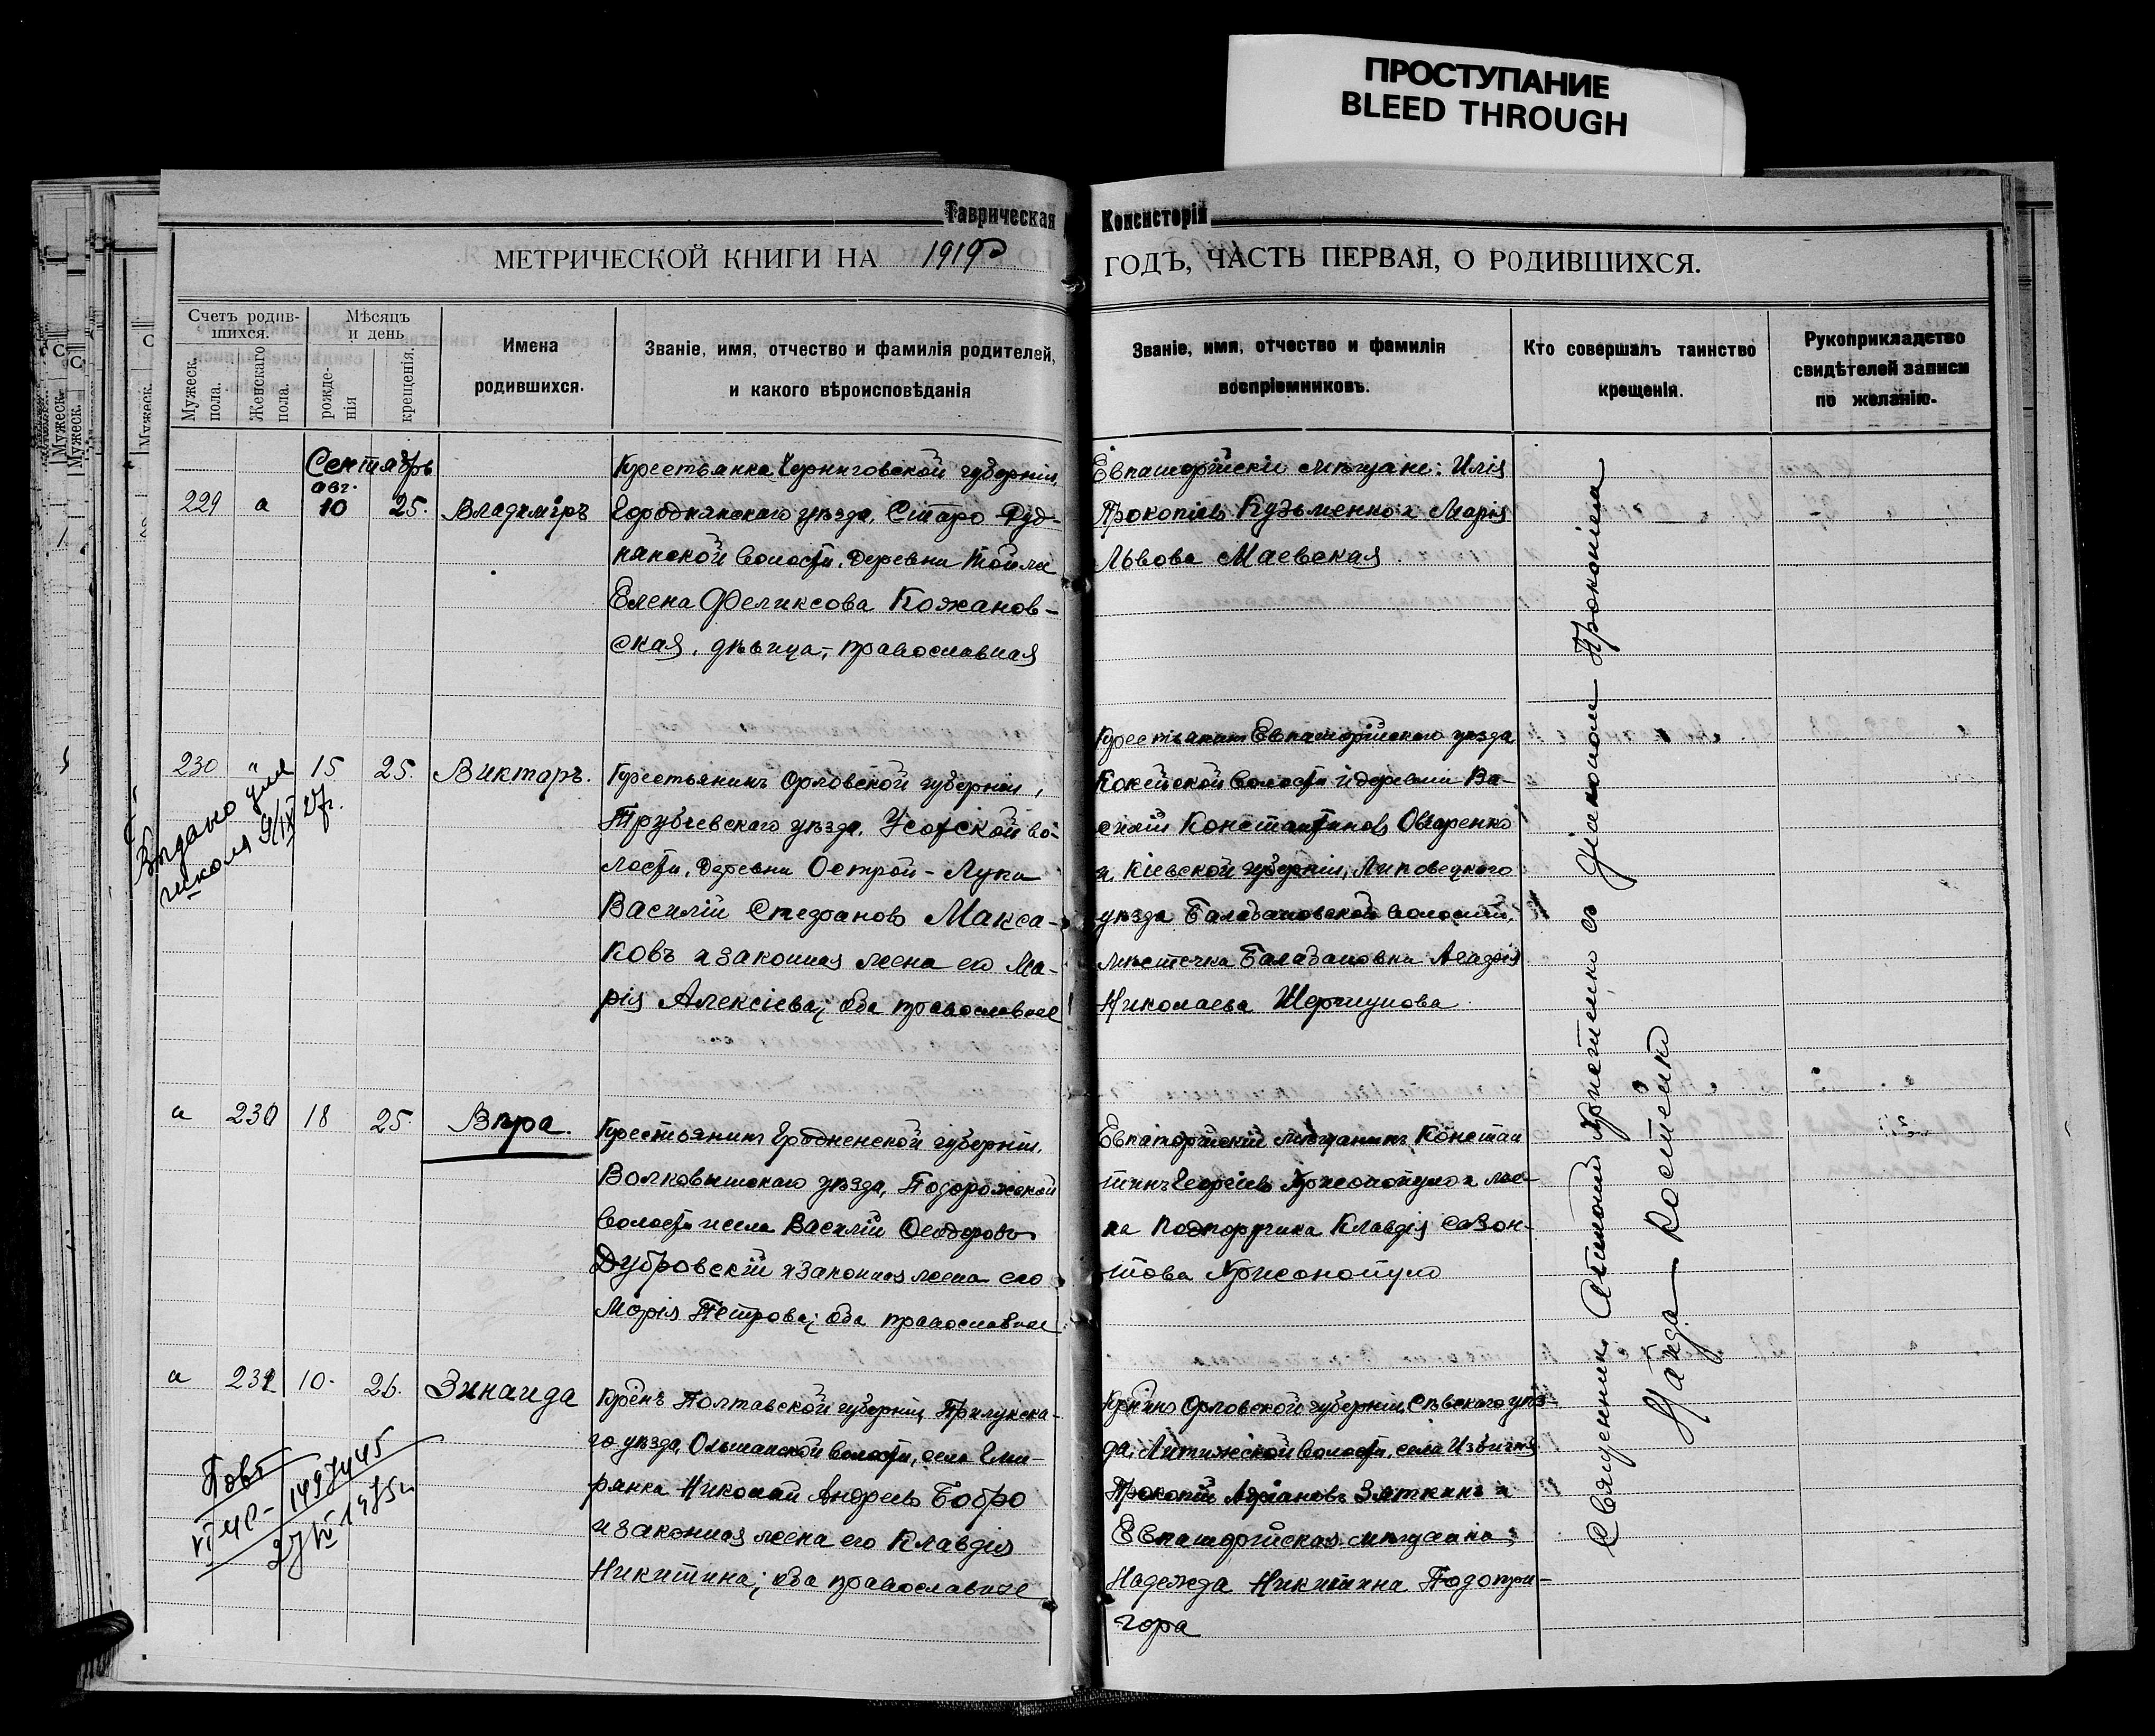 ПРОСТУПАНИЕ
BLEED THROUGH
Таврическая Консисторія
МЕТРИЧЕСКОЙ КНИГИ НА 1919 ГОДЪ, ЧАСТЬ ПЕРВАЯ, О РОДИВШИХСЯ.
Счетъ родив-
шихся.
Мужеск. пола.
Женскаго пола.
Мѣсяцъ
и день
рожде-
нія
крещенія.
Имена
родившихся.
Званіе, имя, отчество и фамилія родителей,
и какого вѣроисповѣданія
Званіе, имя, отчество и фамилія
воспріемниковъ.
Кто совершалъ таинство
крещенія.
Рукоприкладство
свидѣтелей записи
по желанію.
Сентябрь
авг.
229 " 10 25. Владиміръ
Крестьянка Черниговской губерніи,
Городнянскаго уѣзда, Старо-Руд-
нянской волости, деревни
Елена Феликсова Кожанов-
ская, дѣвица, православная
Евпаторійскіе мѣщане: Илія
Прокопіевъ Кузьменко и Марія
Львова Маевская
230 " 15 25. Викторъ.
Выдано для
школы 9/IX 27г.
Крестьянинъ Орловской губерніи,
Трубчевскаго уѣзда, Усохской во-
лости, деревни Острой-Луки
Василій Стефановъ Макса-
ковъ и законная жена его Ма-
рія Алексіева; оба православные
Крестьянинъ Евпаторійскаго уѣзда
Кокейской волости и деревни Ва-
силій Константиновъ Овчаренко
и Кіевской губерніи, Липовецкаго
уѣзда Балабановской волости,
мѣстечка Балабановки Агафія
Николаева Шершунова
" 230 18 25. Вѣра.
Крестьянинъ Гродненской губерніи,
Волковышскаго уѣзда, Подорожской
волости и села Василій Ѳеодоровъ
Дубровскій и законная жена его
Марія Петрова; оба православные
Евпаторійскій мѣщанинъ Констан
тинъ Георгіевъ Хрисонопуло и же-
на подпоручика Клавдія Сазон-
това Хрисонопуло
" 231 10. 26. Зинаида
Кр-нъ Полтавской губерніи, Прилукска-
го уѣзда, Ольшанской волости, села
Николай Андреевъ Бобро
и законная жена его Клавдія
Никитина; оба православные
Кр-нинъ Орловской губерніи, Сѣвскаго уѣз-
да, Литижской волости, села
Прокопій Адріановъ Зяткинъ и
Евпаторійская мѣщанка
Надежда Никитина Подопри-
гора
Священникъ Антоній Христенко съ діакономъ Прокопіемъ
Гайда-Костенко